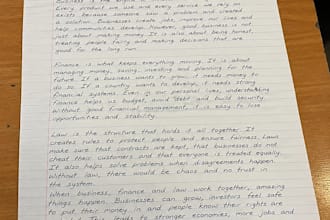 Business is the engine
Every product we use and every service we rely on
exists because someone saw a problem and created
a solution. Businesses create jobs, improve our lives and
help communities develop. However, good business is not
just about making money. It is also about being honest,
treating people fairly and making decisions that are
good for the long run.
Finance is what keeps everything moving. It is about
managing money, saving, investing and planning for the
future. If a business wants to grow, it needs money to
do so. If a country wants to develop, it needs strong
financial systems. Even in our personal lives, understanding
finance helps us budget, avoid debt and build security.
Without good financial management, it is easy to lose
opportunities and stability.
Law is the structure that holds it all together. It
creates rules to protect people and ensure fairness. Laws
make sure that contracts are kept, that businesses do not
cheat their customers and that everyone is treated equally.
It also helps solve problems when disagreements happen.
Without law, there would be chaos and no trust in
the system.
When business, finance and law work together, amazing
things happen. Businesses can grow, investors feel safe
to put their money in and people know their rights are
This leads to stronger economies, more jobs and